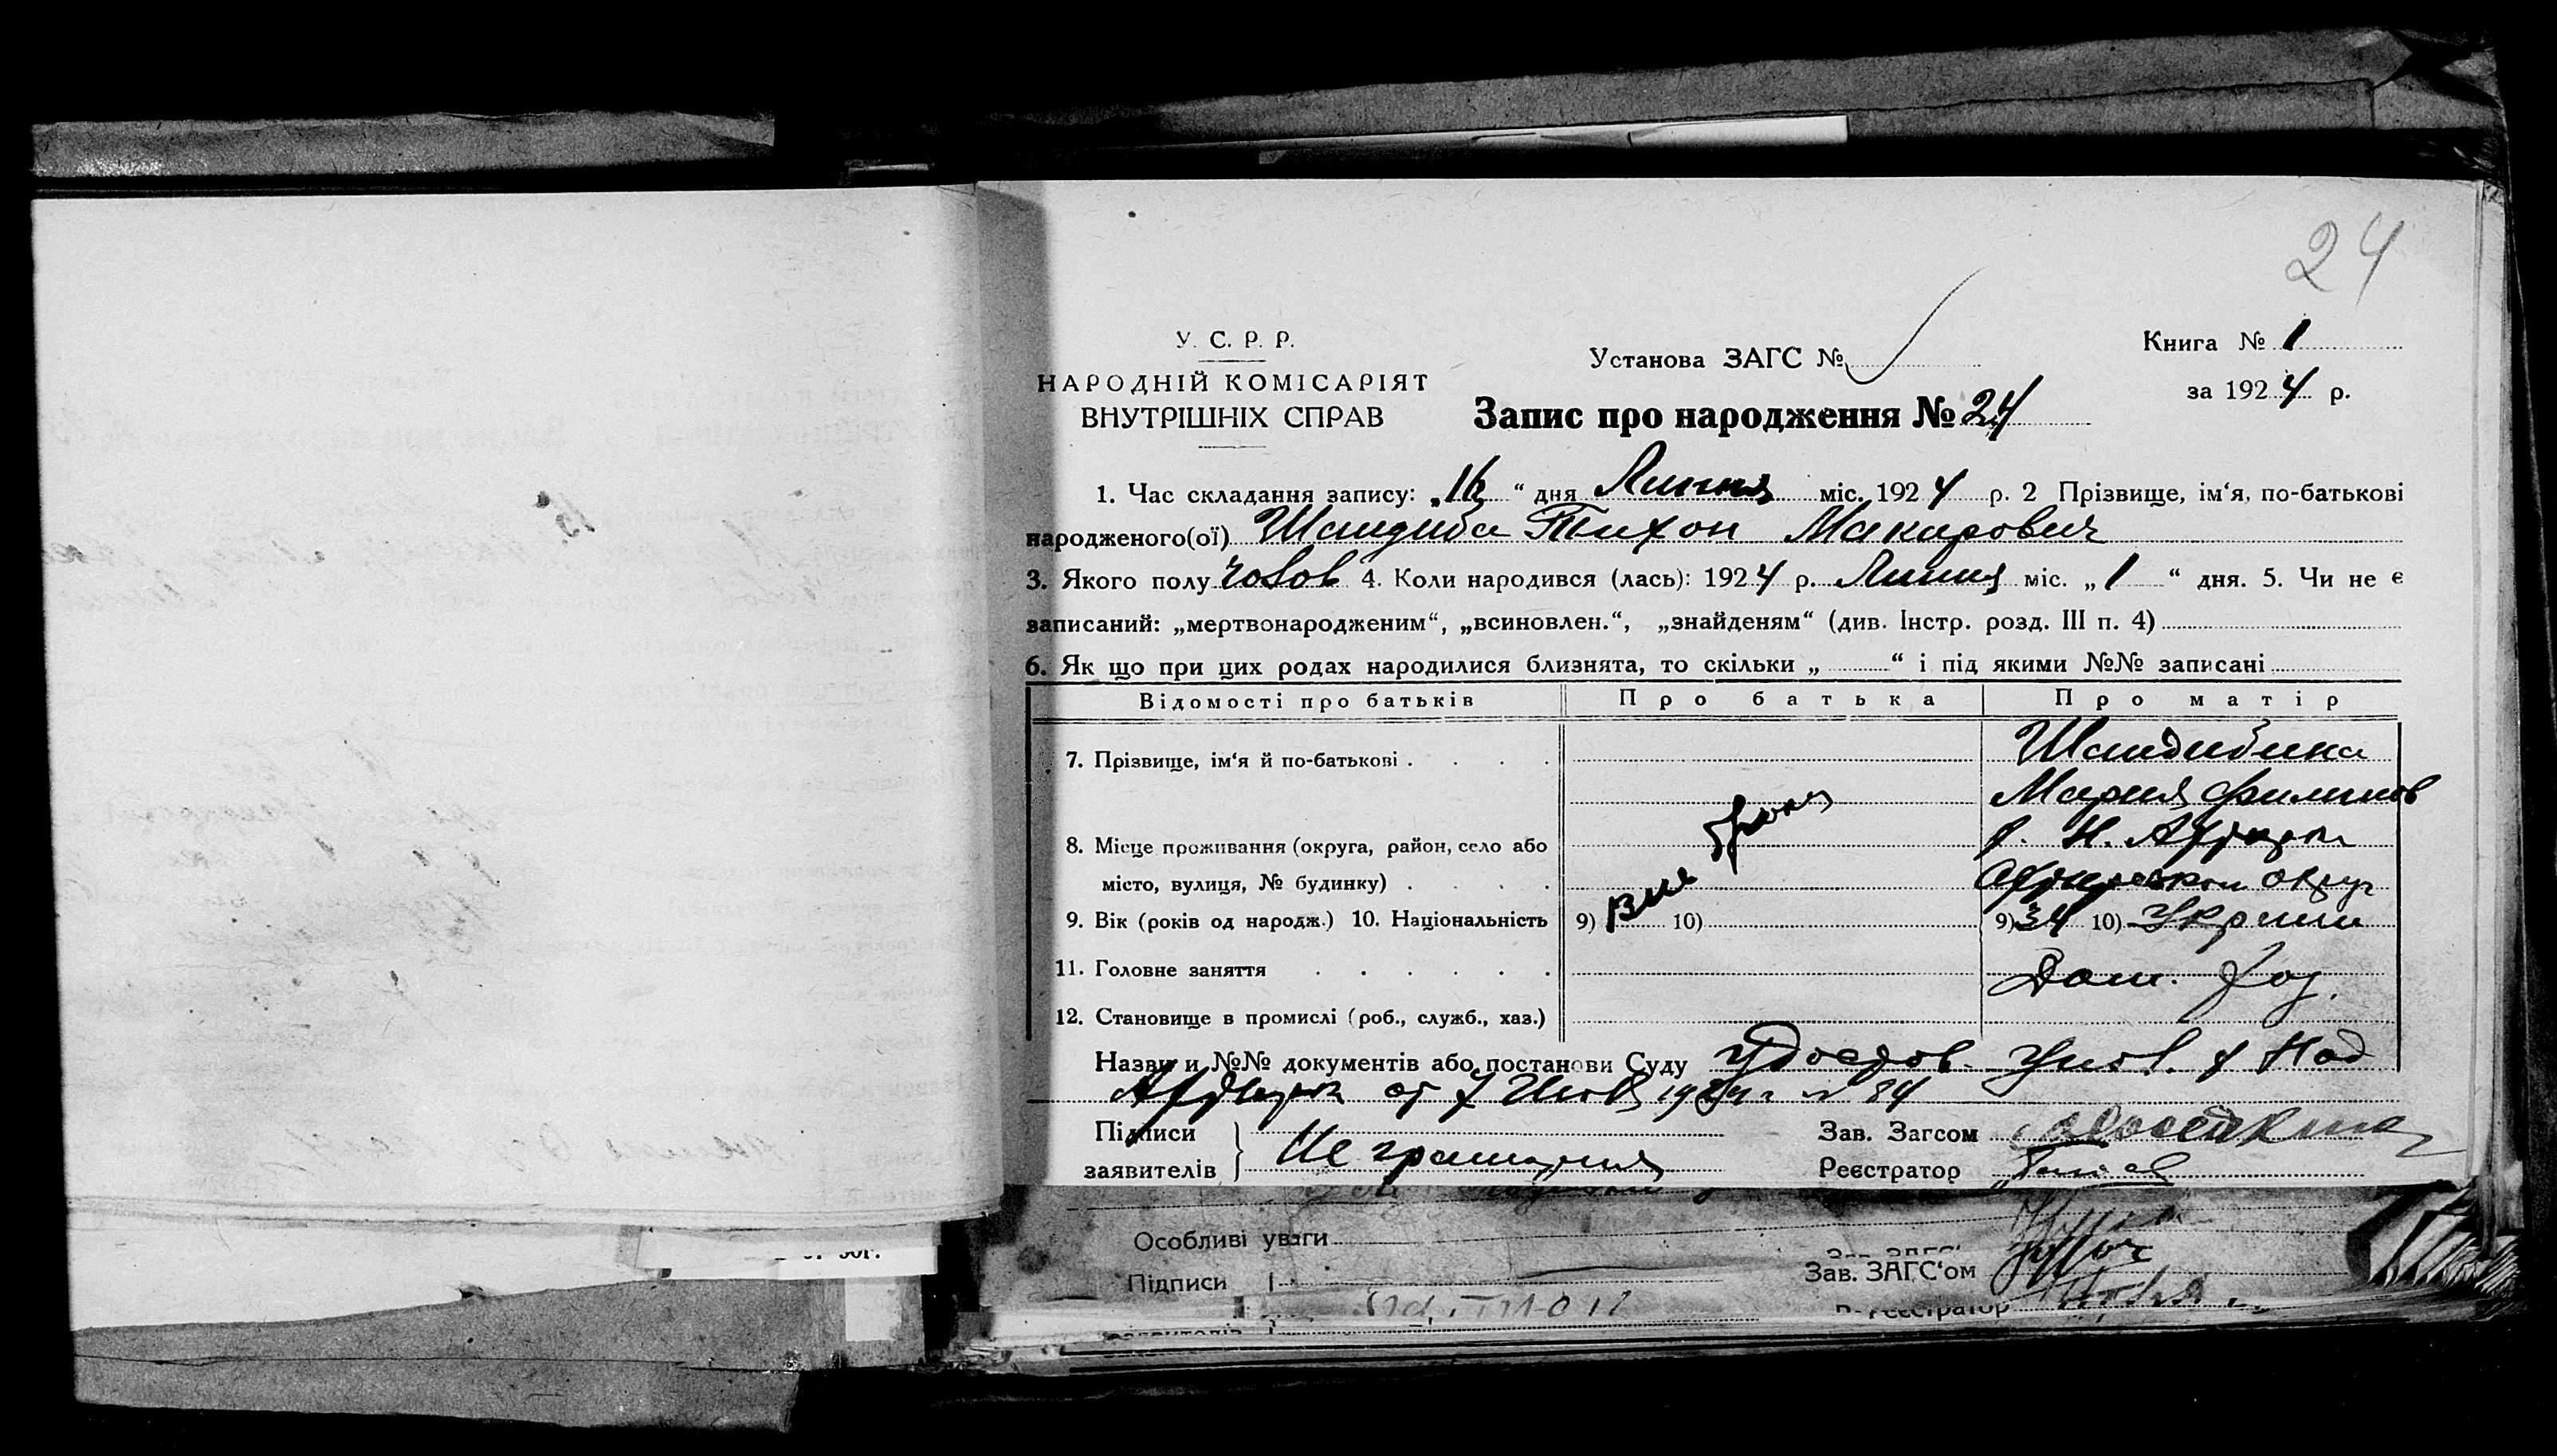 24
У. С. Р. Р.
НАРОДНІЙ КОМІСАРІЯТ
ВНУТРІШНІХ СПРАВ
Установа ЗАГС №
Книга № 1
за 1924 р.
Запис про народження № 24
1. Час складання запису: „16“ дня Липня міс. 1924 р. 2 Прізвище, ім‘я, по-батькові
народженого(ої) Шандиба Тихон Макарович
3. Якого полу чолов 4. Коли народився (лась): 1924 р. Липня міс. „1“ дня. 5. Чи не є
записаний: „мертвонародженим“, „всиновлен.“, „знайденям“ (див. Інстр. розд. III п. 4)
6. Як що при цих родах народилися близнята, то скільки „ “ і під якими №№ записані
Відомості про батьків Про батька Про матір
7. Прізвище, ім‘я й по-батькові Шандибина
Мария Филипов
8. Місце проживання (округа, район, село або
місто, вулиця, № будинку) округ
Вне брака
9. Вік (років од народж.) 10. Національність 9) 10) 9) 34 10) Украин
11. Головне заняття Дом. хоз.
12. Становище в промислі (роб., служб., хаз.)
Назви и №№ документів або постанови Суду Удостов.
от 7 1924 г № 84
Підписи
заявителів
Неграмотная
Зав. Загсом
Реєстратор
Особливі уваги
Підписи
Зав. ЗАГС‘ом
Реєстратор